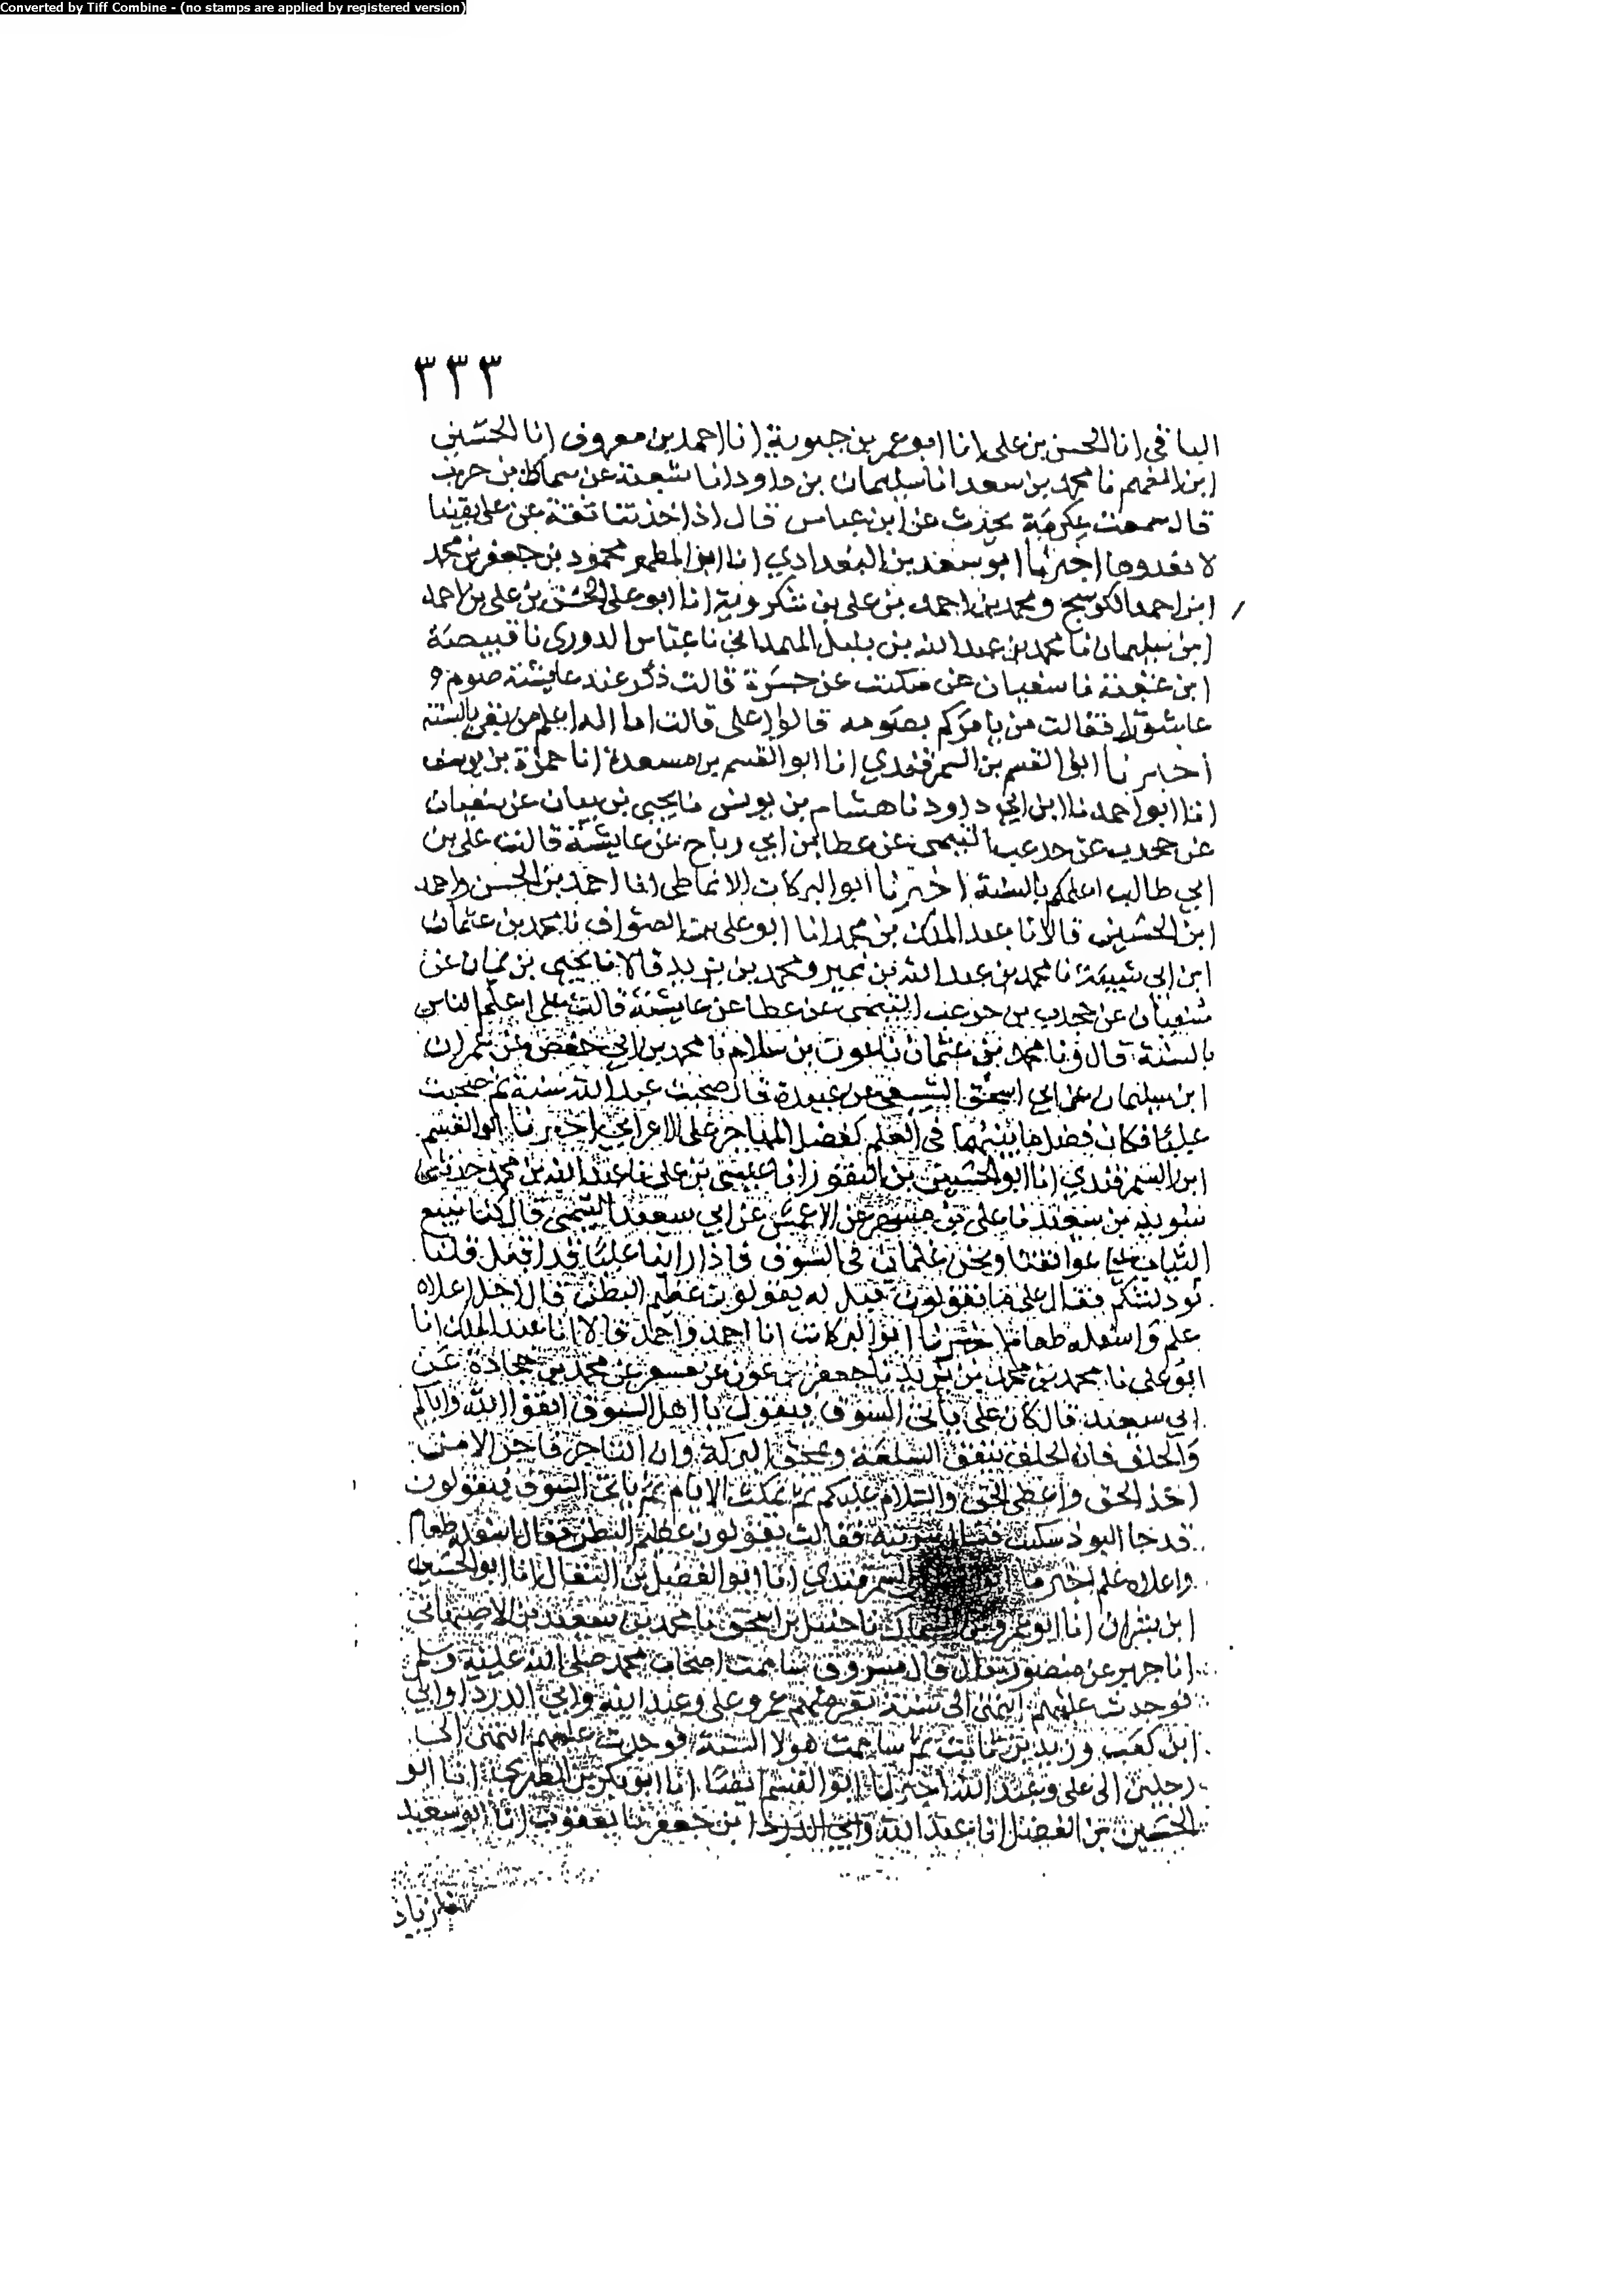 Converted by Tiff Combine - (no stamps are applied by registered version)
٣٣٣
الباقي انا الحسن بن علي انا ابو عمر بن حيوية انا احمد بن معروف انا الحسين
ابن الفهم نا محمد بن سعد انا سليمان بن داود انا شعبة عن سماك بن حرب
قال سمعت عكرمة يحدث عن ابن عباس قال اذا حدثنا ثقة عن علي بفتيا
لا نعدوها اخبرنا ابو سعد بن البغدادي انا ابن المطهر محمود بن جعفر بن محمد
ابن احمد الكوسج ومحمد بن احمد بن علي بن شكروية انا ابو علي الحسن بن علي بن احمد
ابن سليمان نا محمد بن عبد الله بن بلبل الهمداني نا عباس الدوري نا قبيصة
ابن عقبة نا سفيان عن عن جسرة قالت ذكر عند عايشة صوم و
عاشورا فقالت من يامركم بصومه قالوا علي قالت اما انه اعلم من بقي بالسنة
اخبرنا ابو القسم بن السمرقندي انا ابو القسم بن مسعدة انا حمزة بن يوسف
انا ابو احمد نا ابن ابي داود نا هشام بن يونس نا يحيى بن يمان عن سفيان
عن جحدب عن التيمي عن عطا بن ابي رباح عن عايشة قالت علي بن
ابي طالب اعلمكم بالسنة اخبرنا ابو البركات الانماطي انا احمد بن الحسن واحمد
ابن الحسين قالا نا عبد الملك بن محمد انا ابو علي بن الصواف نا محمد بن عثمان
ابن ابي شيبة نا محمد بن عبد الله بن نمير ومحمد بن يزيد قالا نا يحيى بن يمان عن
سفيان عن جحدب بن التيمي عن عطا عن عايشة قالت علي اعلم الناس
بالسنة قال ونا محمد بن عثمان نا عون بن سلام نا محمد بن ابي حفص عن عمران
ابن سليمان عن ابي اسحق السبيعي عن عبيدة قال صحبت عبد الله سنة ثم صحبت
عليا فكان فضل ما بينهما في العلم كفضل المهاجر على الاعرابي اخبرنا ابو القسم
ابن السمرقندي انا ابو الحسين بن النقور انا عيسى بن علي نا عبد الله بن محمد حدثني
سويد بن سعيد نا علي بن مسهر عن الاعمش عن ابي سعيد التيمي قال كنا نبيع
الثياب على عواتقنا ونحن غلمان في السوق فاذا راينا عليا قد اقبل قلنا
فقال علي ما يقولون قيل له يقولون عظيم البطن قال اجل اعلاه
علم واسفله طعام اخبرنا ابو البركات انا احمد واحمد قالا انا عبد الملك انا
ابو علي نا محمد بن محمد بن يزيد نا جعفر بن عون عن مسعر عن محمد بن جحادة عن
ابي سعيد قال كان علي ياتي السوق فيقول يا اهل السوق اتقوا الله واياكم
والحلف فان الحلف ينفق السلعة ويمحق البركة وان التاجر فاجر الا من
اخذ الحق واعطى الحق والسلام عليكم ثم يمكث الايام ثم ياتي السوق فيقولون
قد جا فقالت يقولون عظيم البطن فقال اسفله طعام
واعلاه علم اخبرنا السمرقندي انا ابو الفضل بن البقال انا ابو الحسين
ابن بشران انا ابو عمرو بن السماك نا حنبل بن اسحق نا محمد بن سعيد بن الاصبهاني
انا جرير عن منصور قال قال مسروق شاممت اصحاب محمد صلى الله عليه وسلم
فوجدت علمهم انتهى الى ستة نفر منهم عمر وعلي وعبد الله وابي الدردا وابي
ابن كعب وزيد بن ثابت ثم شاممت هولا الستة فوجدت علمهم انتهى الى
رجلين الى علي وعبد الله اخبرنا ابو القسم ايضا انا ابو بكر بن الطبري انا ابو
الحسين بن الفضل انا عبد الله وابي الدردا بن جعفر نا يعقوب انا ابو سعيد
زياد